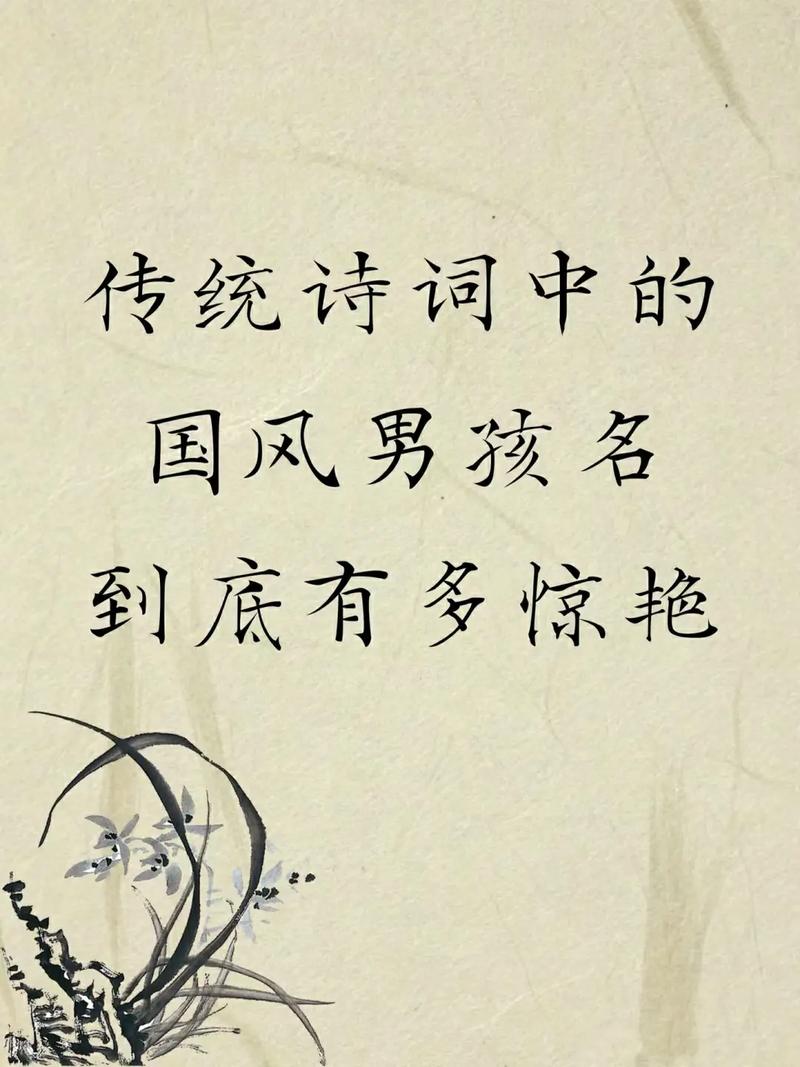 传统诗词中的
国风男孩名
到底有多惊艳